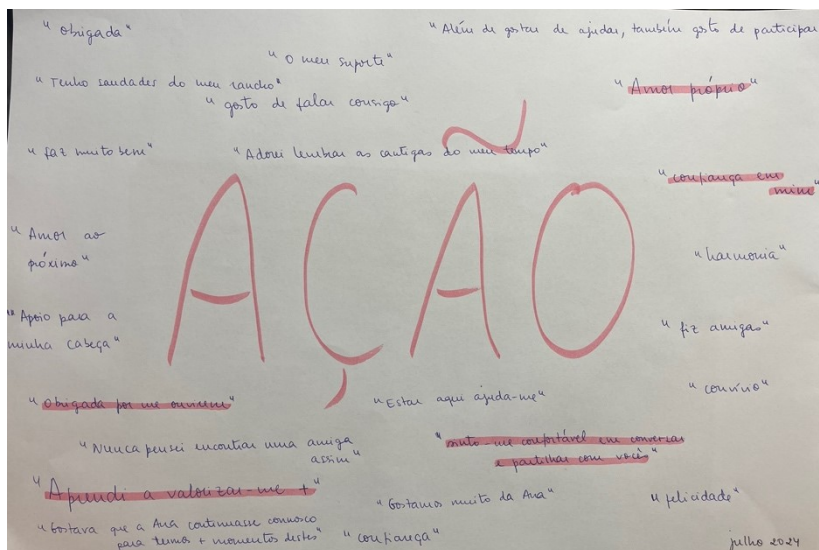 "Obrigada"
"Além de gostar de ajudar, também gosto de participar
"O meu suporte"
"Tenho saudades do meu rancho"
"Amor próprio"
"gosto de falar consigo"
"faz muito bem"
"Adorei lembrar as cantigas do meu tempo"
"confiança em
mim"
AÇÃO
"Amor ao
próximo"
"harmonia"
"Apoio para a
minha cabeça"
"fiz amigas"
"convívio"
"Obrigada por me ouvirem"
"Estar aqui ajuda-me"
"Nunca pensei encontrar uma amiga
assim"
"sinto-me confortável em conversar
e partilhar com vocês"
"Aprendi a valorizar-me +"
"Gostamos muito da Ana"
"felicidade"
"Gostava que a Ana continuasse connosco
para termos + momentos destes"
"confiança"
julho 2024